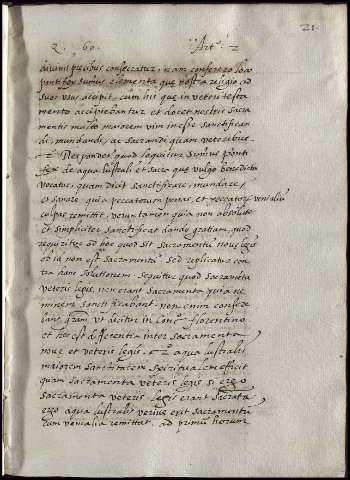 21
Q. 60. Art.º 2
divinis precibus consecratur, nam confert eo loco
pontifex sumus elementa que nostra religio ad
suos usus accepit, cum his que in veteri testa
mento accipiebantur et docet nostris sacra
mentis multo maiorem vim inesse sanctifican
di, mundandi, ac sacrandi quam veteribus
Respondet quod loquitur sumus ponti
fex de aqua lustrali et sacro que vulgo benedicta
vocatur, quam dicit sanctificare, mundare,
et sanare quia peccatorum penas, et peccatorum venialium
culpas remittit, veruntamen quia non absolute
et simpliciter sanctificat dando gratiam, quod
requiritur ad hoc quod sit sacramentum noue legis
ob id non est sacramentum. Sed replicatur con
tra hanc solutionem. sequitur quod sacramenta
veteris legis, non erant sacramenta quia ne
minem sanctificabant. non enim confere
bant gratiam ut dicitur in Conc.º florentino
et hec est differentia inter sacramenta
noue et veteris legis. aqua lustralis
maiorem sanctitatem spiritualem efficit
quam sacramenta veteris legis, si ergo
sacramenta veteris legis erant sacramenta
ergo aqua lustralis verius erit sacramentum
cum venialia remittat. ad primum horum